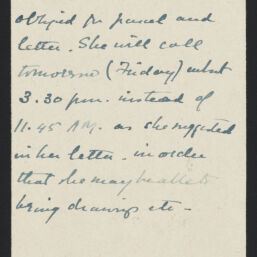 obliged for parcel and
letter. She will call
tomorrow (Friday) about
3.30 p.m. instead of
11.45 A.M. as she suggested
in her letter. in order
that she may be able to
bring drawings etc -